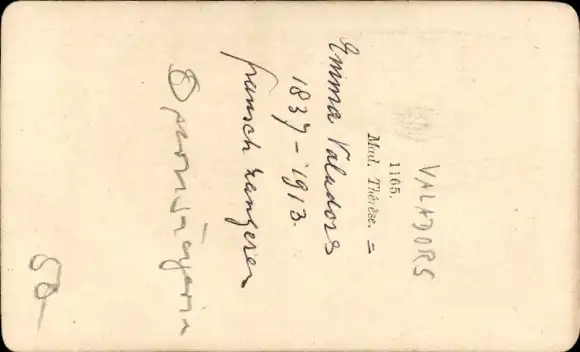 VALADORS
1165.
Mad. Thérèse. =
Emma Valadors
1837 - 1913.
fransch zangeres
Opernsängerin
50-